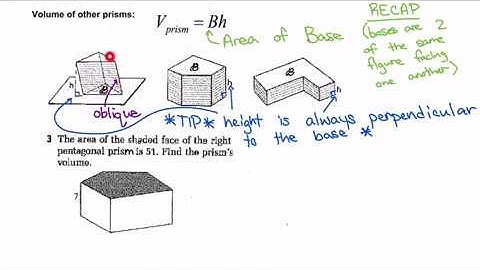 Volume of other prisms:
V prism = Bh
Area of Base
RECAP
(bases are 2
of the same
figure facing
one another)
h
B
oblique
B
h
B
h
*TIP* height is always perpendicular
to the base *
3 The area of the shaded face of the right
pentagonal prism is 51. Find the prism's
volume.
7